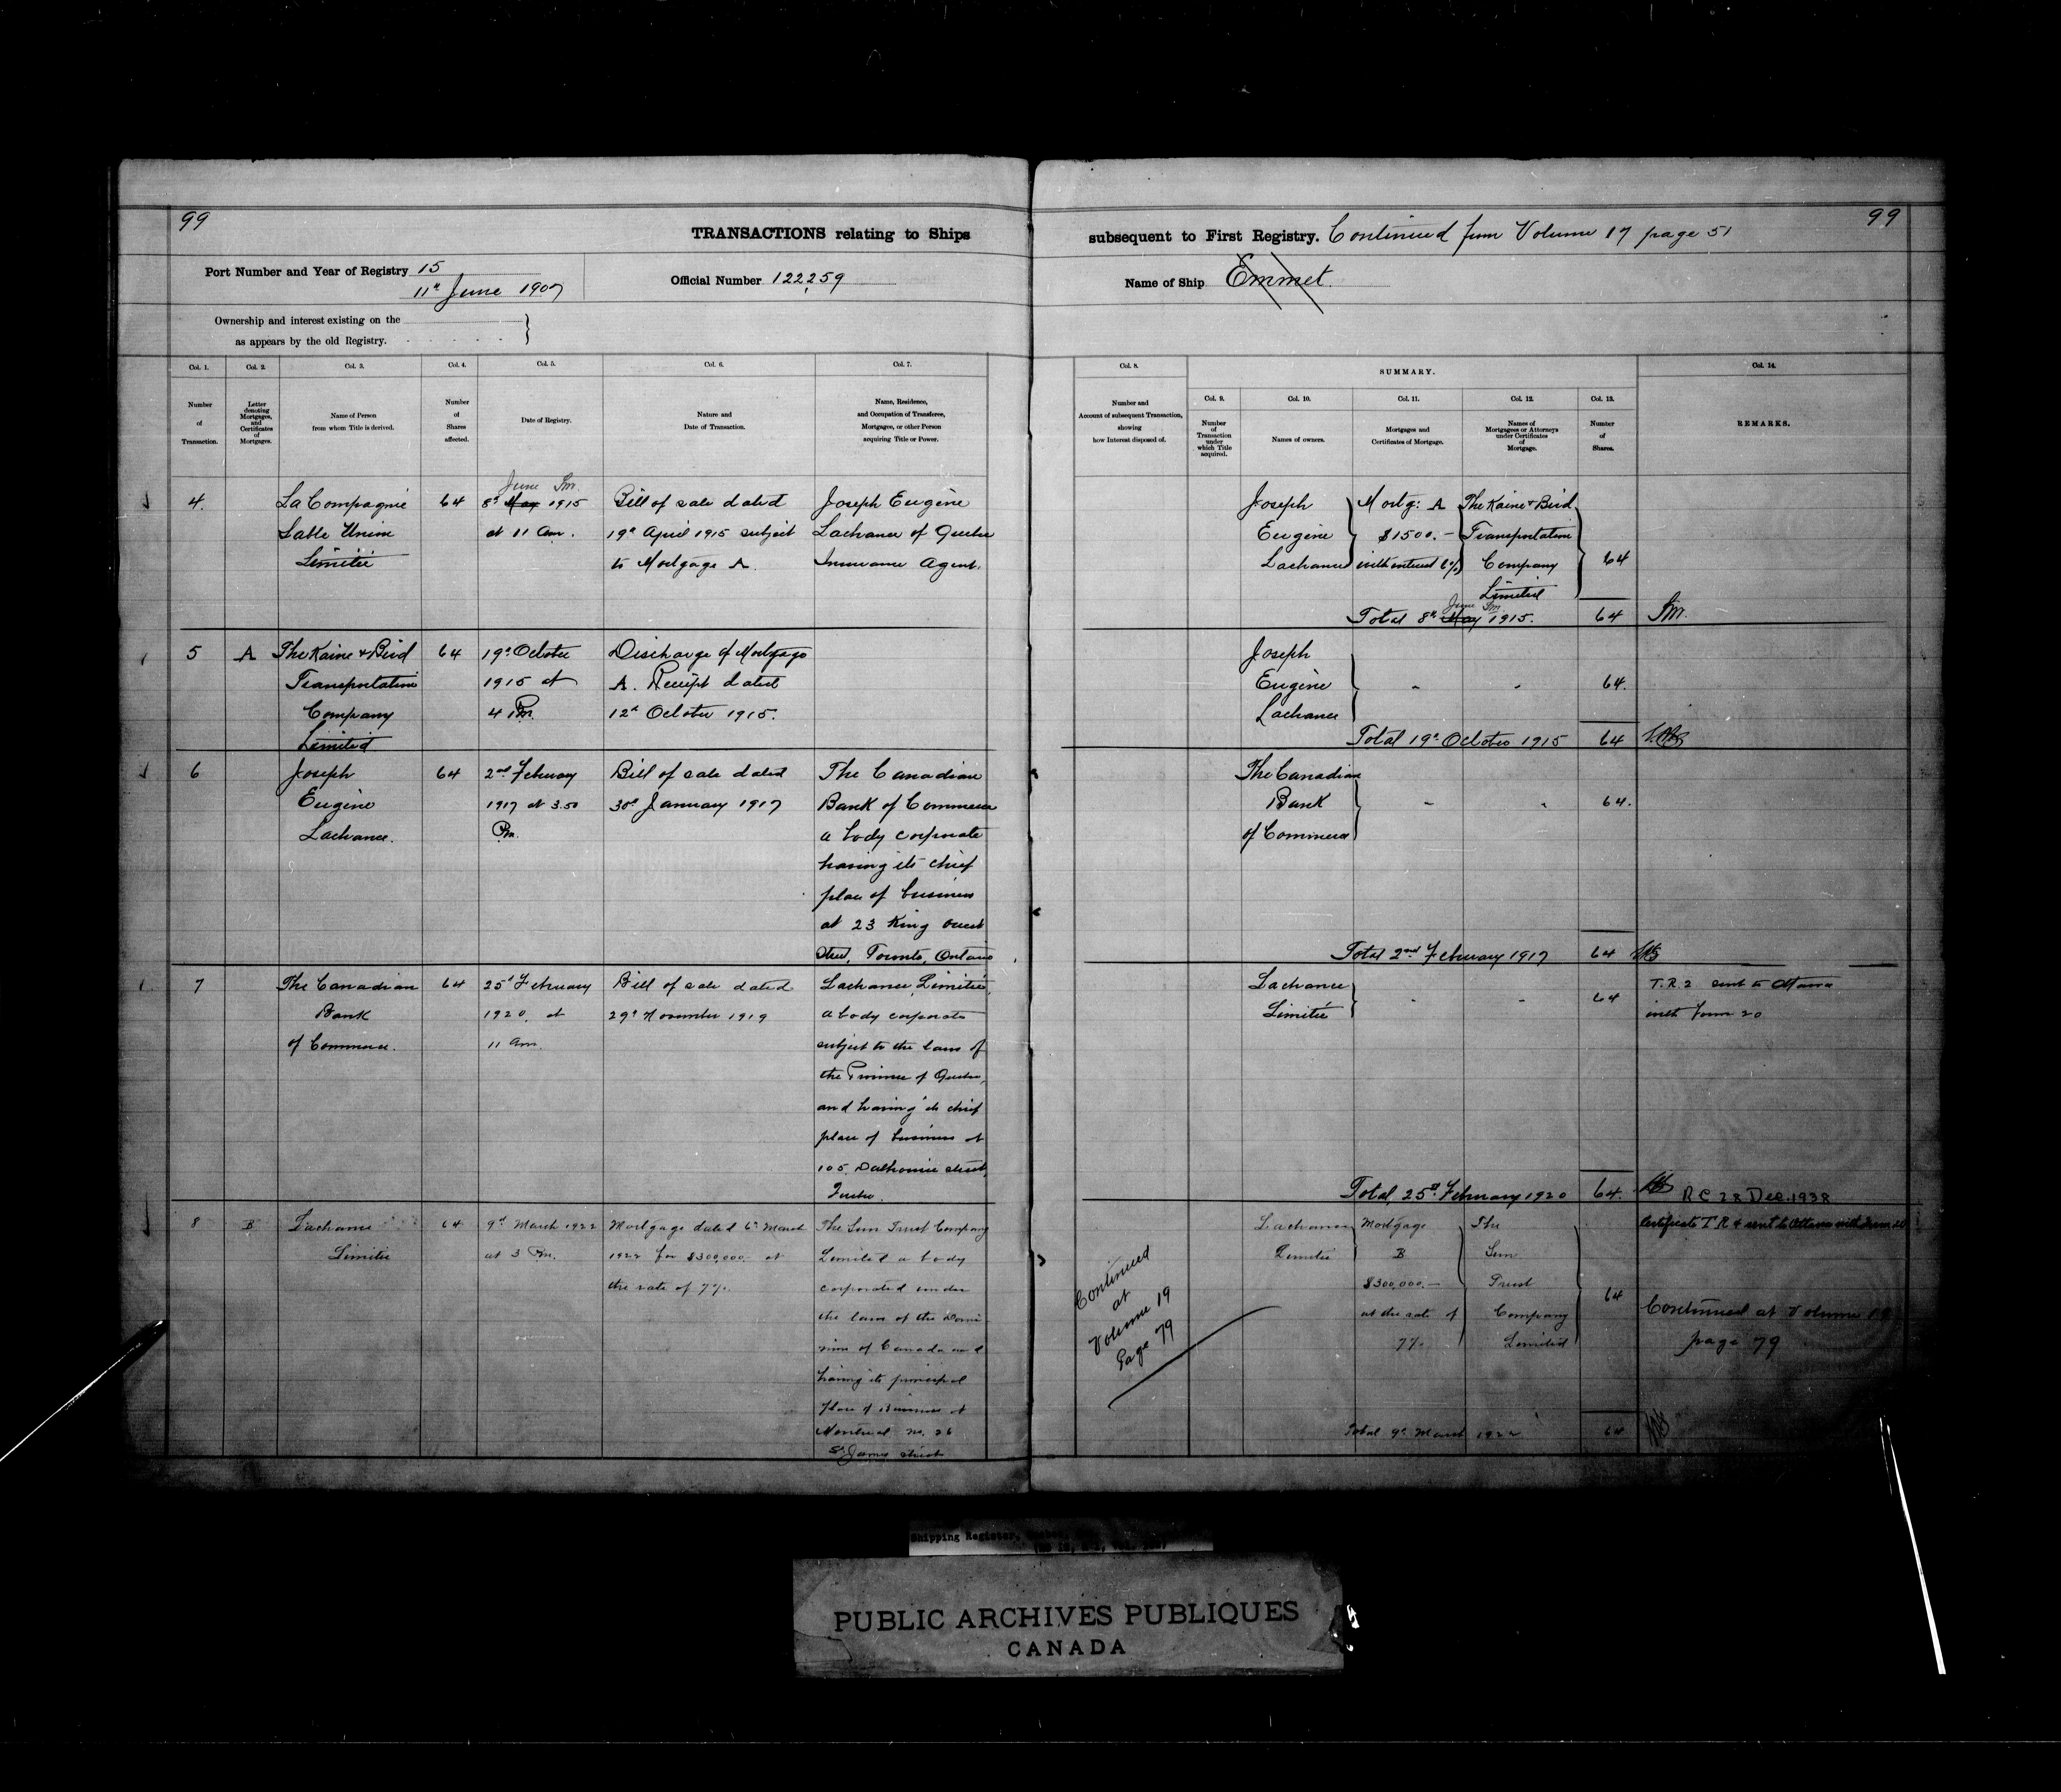 99
TRANSACTIONS relating to Ships
Port Number and Year of Registry 15
11th June 1907
Official Number 122259
Ownership and interest existing on the
as appears by the old Registry.
Col. 1.
Number
of
Transaction.
Col. 2.
Letter
denoting
Mortgages,
and
Certificates
of
Mortgages.
Col. 3.
Name of Person
from whom Title is derived.
Col. 4.
Number
of
Shares
affected.
Col. 5.
Date of Registry.
Col. 6.
Nature and
Date of Transaction.
Col. 7.
Name, Residence,
and Occupation of Transferee,
Mortgagee, or other Person
acquiring Title or Power.
4.
La Compagnie
Sable Union
Limitée
64
June
8th May 1915
at 11 am.
Bill of sale dated
19th April 1915 subject
to Mortgage A.
Joseph Eugène
Lachance of Quebec
Insurance Agent.
5
A
The Kaine & Bird
Transportation
Company
Limited
64
19th October
1915 at
4 Pm.
Discharge of Mortgage
A. Receipt dated
12th October 1915.
6
Joseph
Eugène
Lachance.
64
2nd February
1917 at 3.50
Pm.
Bill of sale dated
30th January 1917
The Canadian
Bank of Commerce
a body corporate
having its chief
place of business
at 23 King West
Street, Toronto, Ontario
7
The Canadian
Bank
of Commerce.
64
25th February
1920. at
11 am.
Bill of sale dated
29th November 1919
Lachance Limitée,
a body corporate
subject to the laws of
the Province of Quebec,
and having its chief
place of business at
105, Dalhousie street,
Quebec.
8
B
Lachance
Limitée
64
9th March 1922
at 3 Pm.
Mortgage dated 6th March
1922 for $300,000.- at
the rate of 7%.
The Sun Trust Company
Limited a body
corporated under
the laws of the Domi
nion of Canada and
having its principal
place of Business at
Montreal no. 26
St James street
99
subsequent to First Registry. Continued from Volume 17 page 51
Name of Ship Emmet.
Col. 8.
Number and
Account of subsequent Transaction,
showing
how Interest disposed of.
SUMMARY.
Col. 9.
Number
of
Transaction
under
which Title
acquired.
Col. 10.
Names of owners.
Col. 11.
Mortgages and
Certificates of Mortgage.
Col. 12.
Names of
Mortgagees or Attorneys
under Certificates
of
Mortgage.
Col. 13.
Number
of
Shares.
Col. 14.
REMARKS.
Joseph
Eugène
Lachance
Mortg: A
$1500.-
with interest 6%
The Kaine & Bird
Transportation
Company
Limited
64
June
Total 8th May 1915.
64
Joseph
Eugène
Lachance
64.
Total 19th October 1915
64
The Canadian
Bank
of Commerce
64.
Total 2nd February 1917
64
Lachance
Limitée
64
T.R.2 sent to Ottawa
with form 20
Total 25th February 1920
64.
R C 28 Dec. 1938
Continued
at
Volume 19
Page 79
Lachance
Limitée
Mortgage
B
$300,000.-
at the rate of
7%
The
Sun
Trust
Company
Limited
64
Certificate T.R 4 sent to Ottawa with form 20
Continued at Volume 19
page 79
Total 9th March 1922
64
Shipping Register,
PUBLIC ARCHIVES PUBLIQUES
CANADA